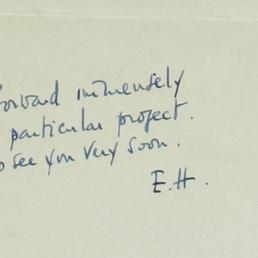 forward immensely
particular project.
to see you very soon.
E.H.